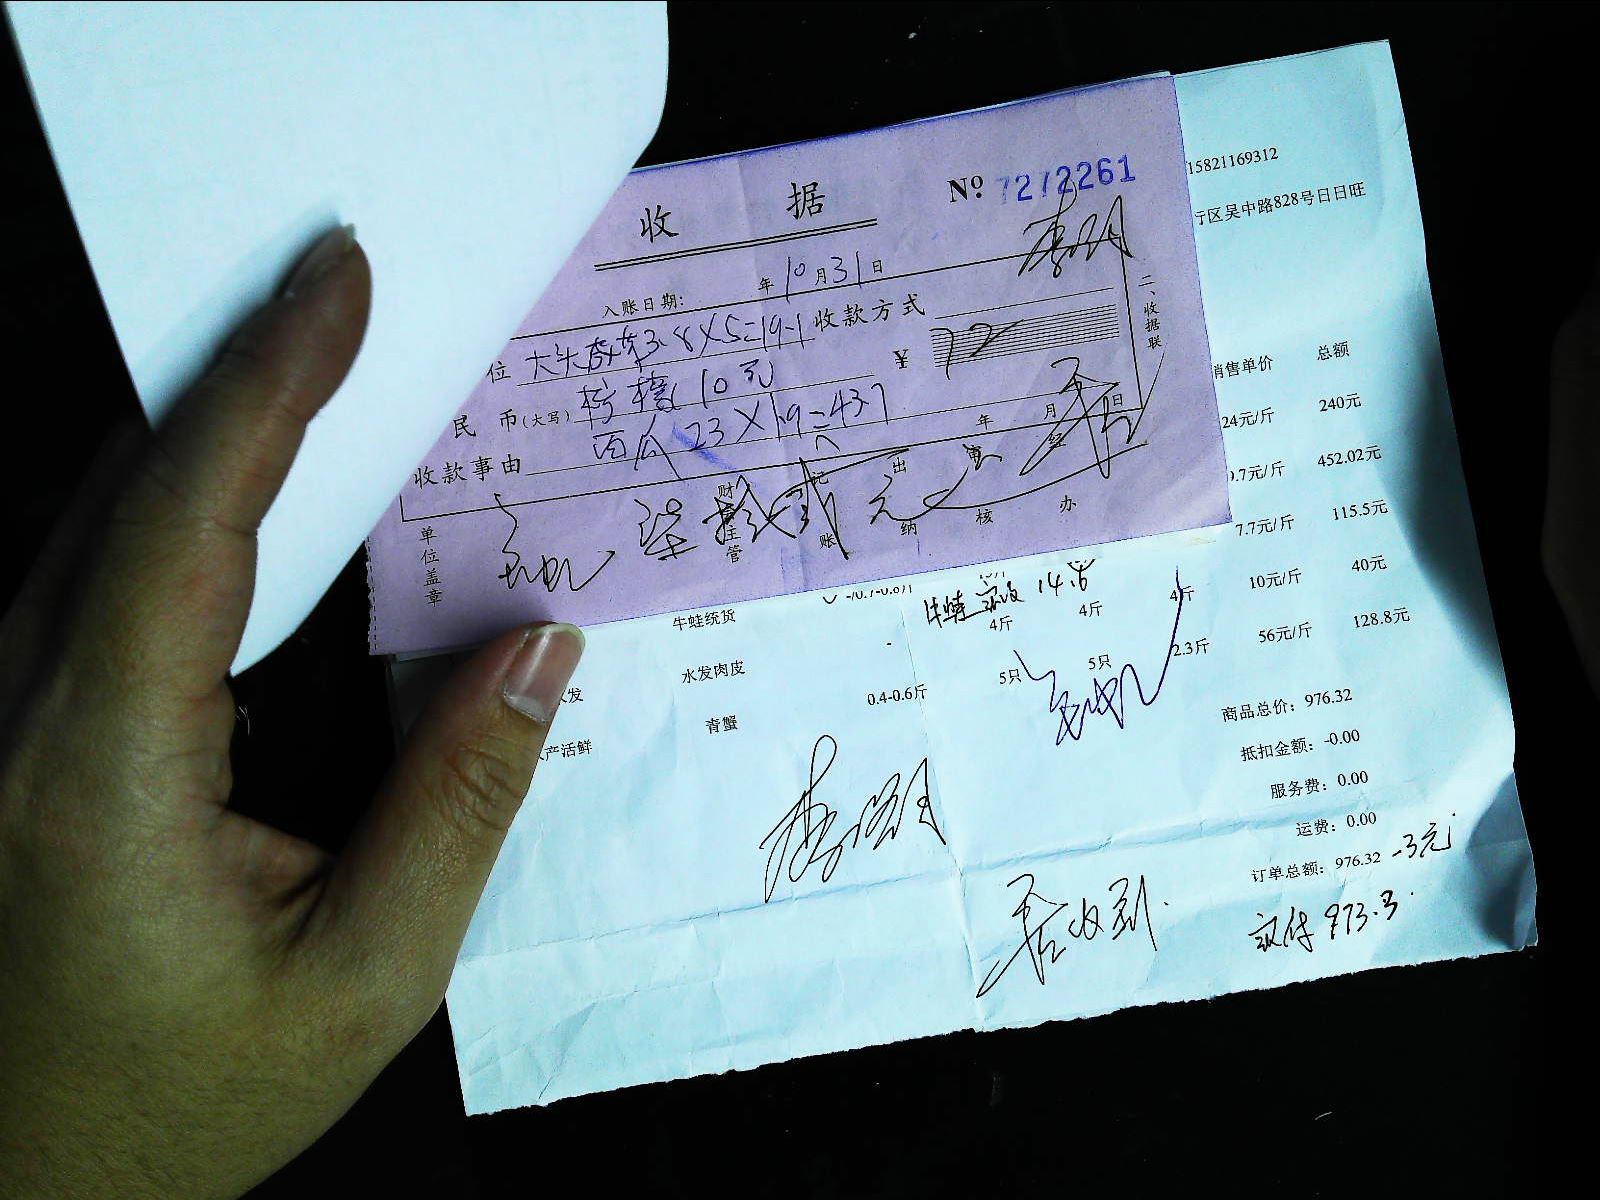 收 据
Nº 7212261
年10月31日
入账日期：
位 大头菜3.8X5=19.1 收款方式
民 币(大写) 柠檬 10元 ¥ 72
收款事由 西瓜 23X1.9=43.7 年 月 日
单位盖章
财务主管
记账
出纳
审核
经办
柒拾贰元
二、收据联
15821169312
行区吴中路828号日日旺
销售单价 总额
24元/斤 240元
9.7元/斤 452.02元
7.7元/斤 115.5元
牛蛙统货 4斤 4斤 4斤 10元/斤 40元
水发 水发肉皮 5只 5只 2.3斤 56元/斤 128.8元
水产活鲜 青蟹 0.4-0.6斤
牛蛙 14.8
商品总价：976.32
抵扣金额：-0.00
服务费：0.00
运费：0.00
订单总额：976.32 -3元
收到.
实付 973.3